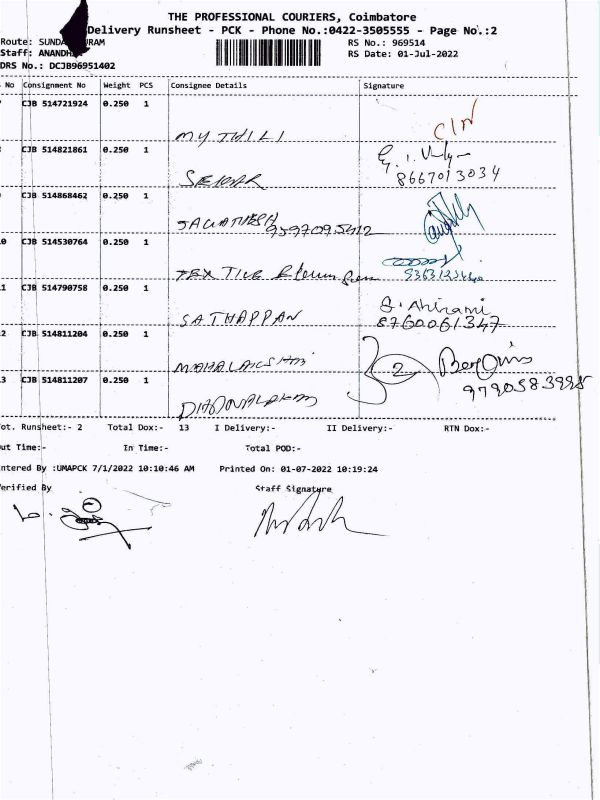 THE PROFESSIONAL COURIERS, Coimbatore
Delivery Runsheet - PCK - Phone No.:0422-3505555 - Page No.:2
Route: SUNDA URAM RS No.: 969514
Staff: ANANDH RS Date: 01-Jul-2022
DRS No.: DCJB96951402
No Consignment No Weight PCS Consignee Details Signature
CJB 514721924 0.250 1
MYTHILI CIN
CJB 514821861 0.250 1
SEKAR 8667013034
CJB 514868462 0.250 1
JAGATHESH 9597095412
0 CJB 514530764 0.250 1
TEXTILE
1 CJB 514790758 0.250 1 S. Abirami
SATHAPPAN 8760061347
2 CJB 514811204 0.250 1
MAHALAKSHMI 2
3 CJB 514811207 0.250 1 9790583995
DHANALAKSHMI
ot. Runsheet:- 2 Total Dox:- 13 I Delivery:- II Delivery:- RTN Dox:-
ut Time:- In Time:- Total POD:-
ntered By :UMAPCK 7/1/2022 10:10:46 AM Printed On: 01-07-2022 10:19:24
erified By Staff Signature